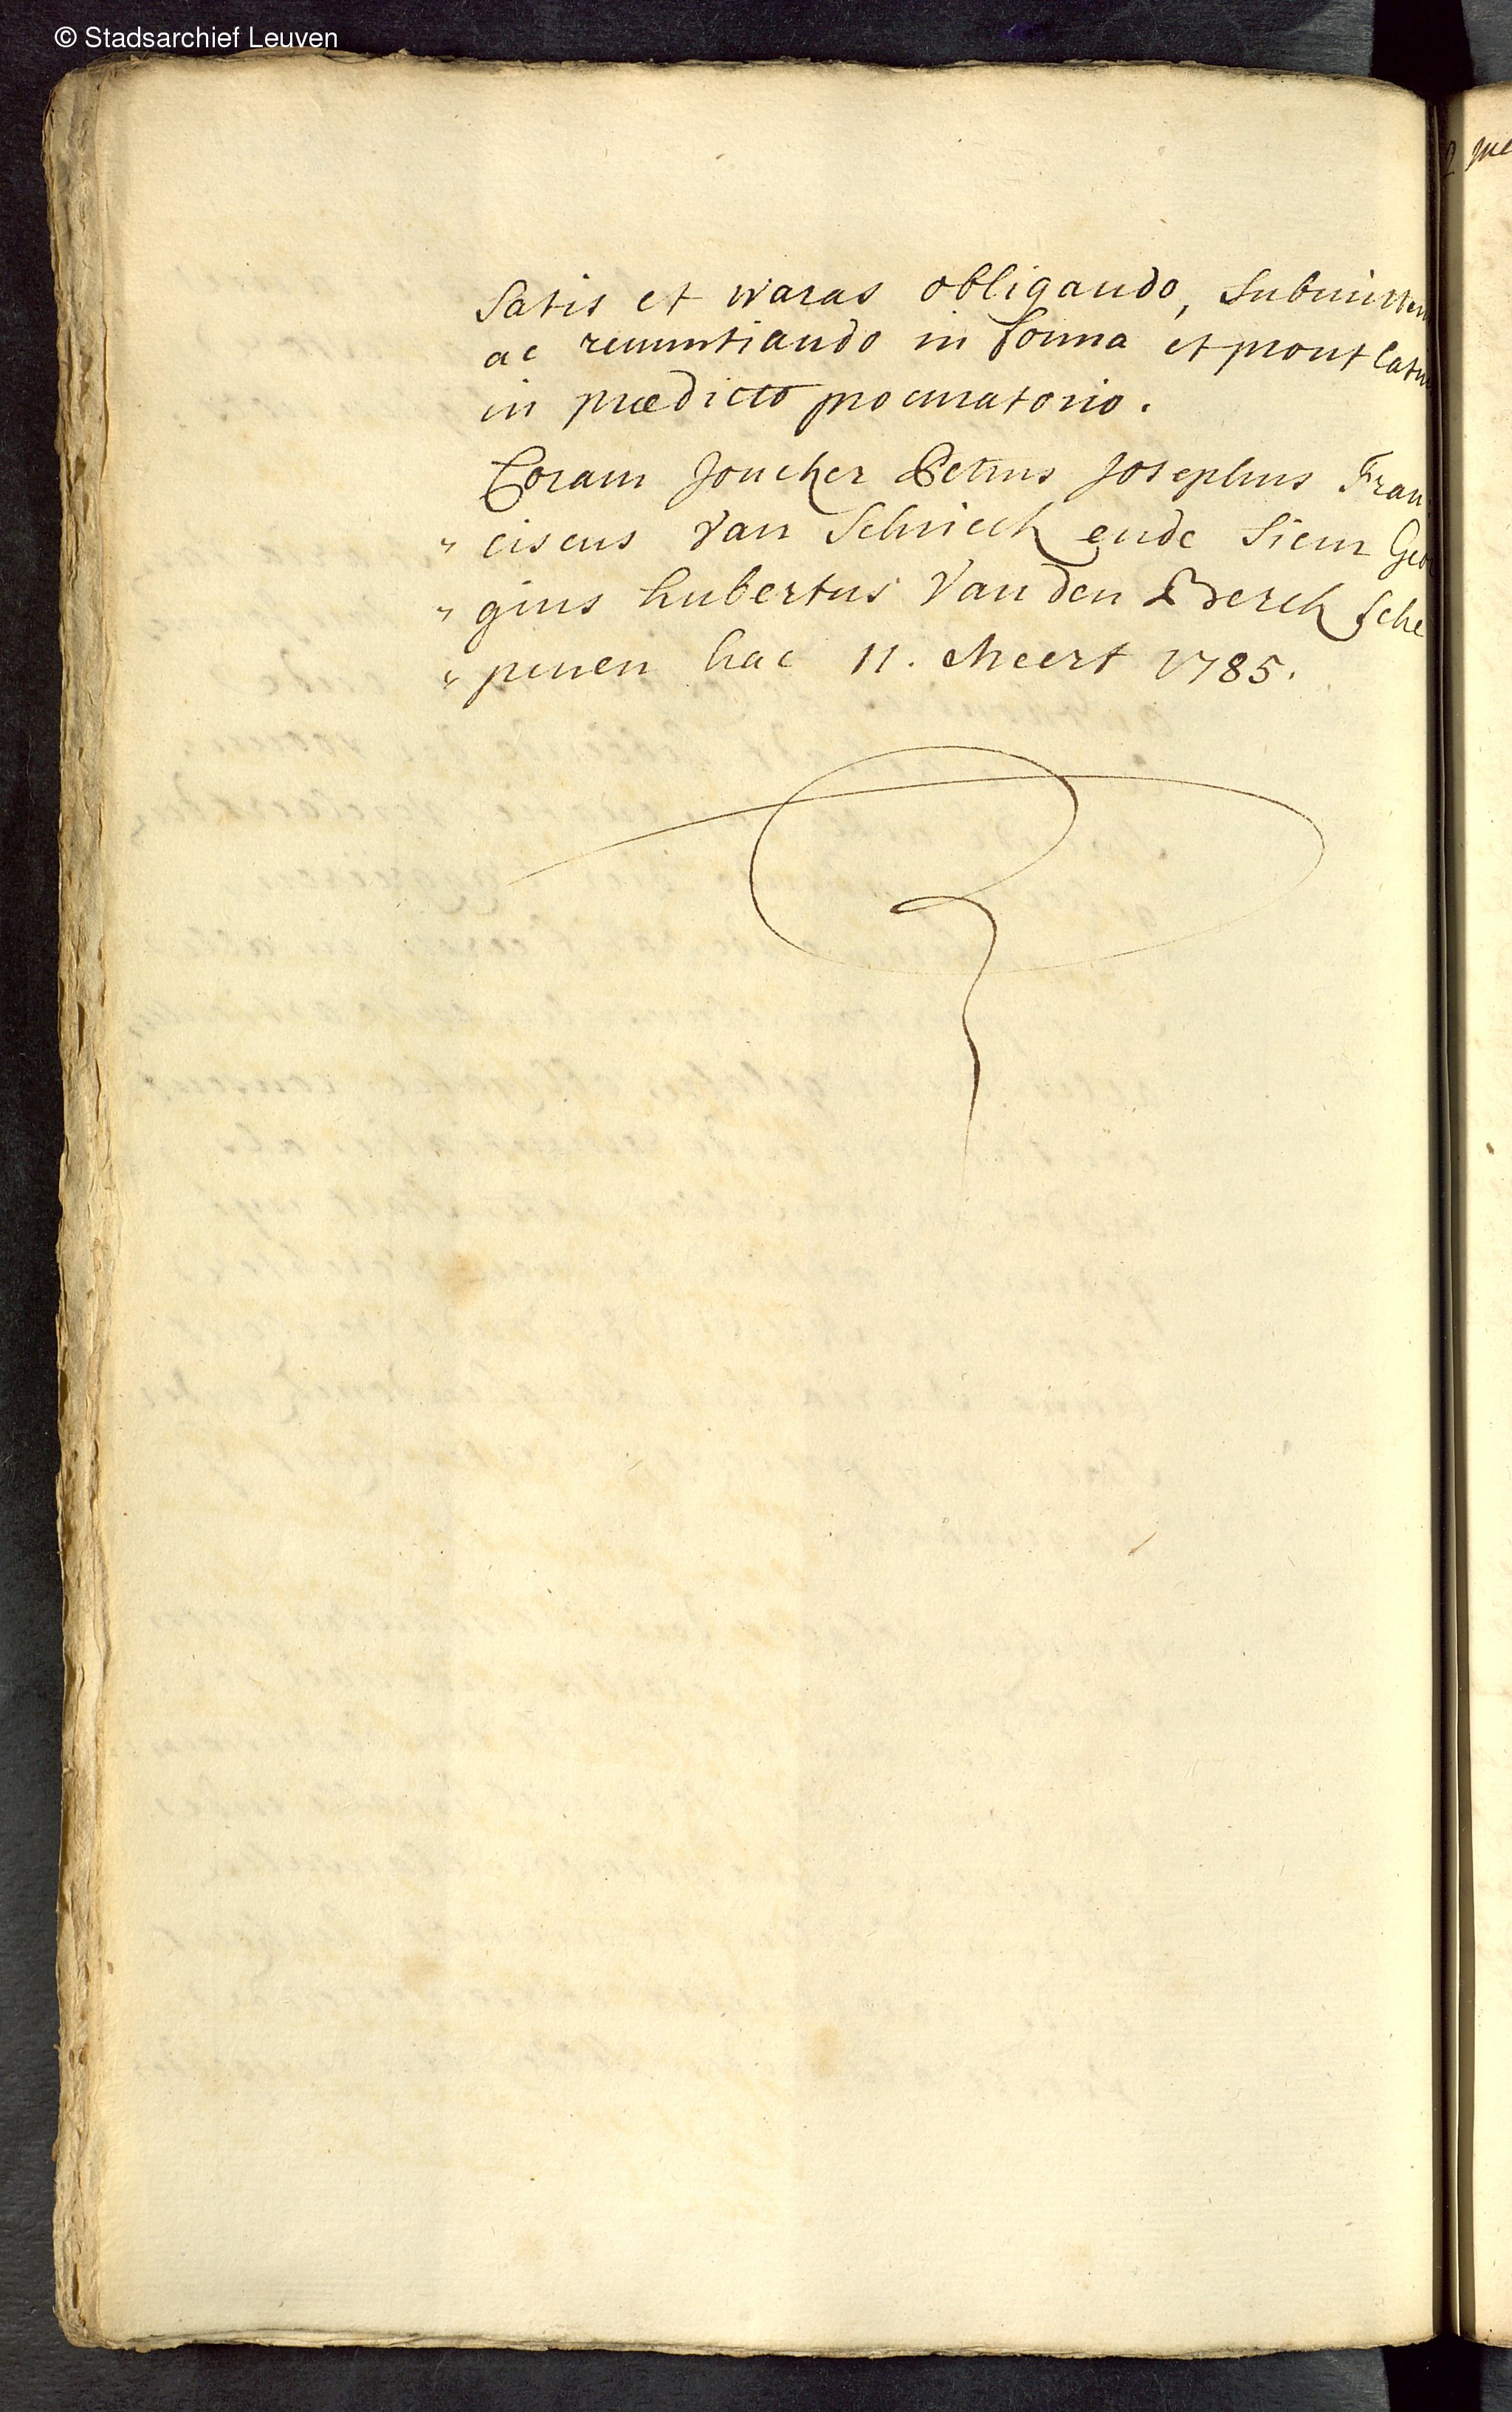 © Stadsarchief Leuven
Satis et waras obligando, Submitten
ac renuntiando in forma et prout latius
in prædicto procuratorio.
Coram Joncker Petrus Josephus Fran:
„ ciscus Van Schrieck ende Sieur Geor
„ gius hubertus Van den Berch sche
„ penen hac 11. Meert 1785.